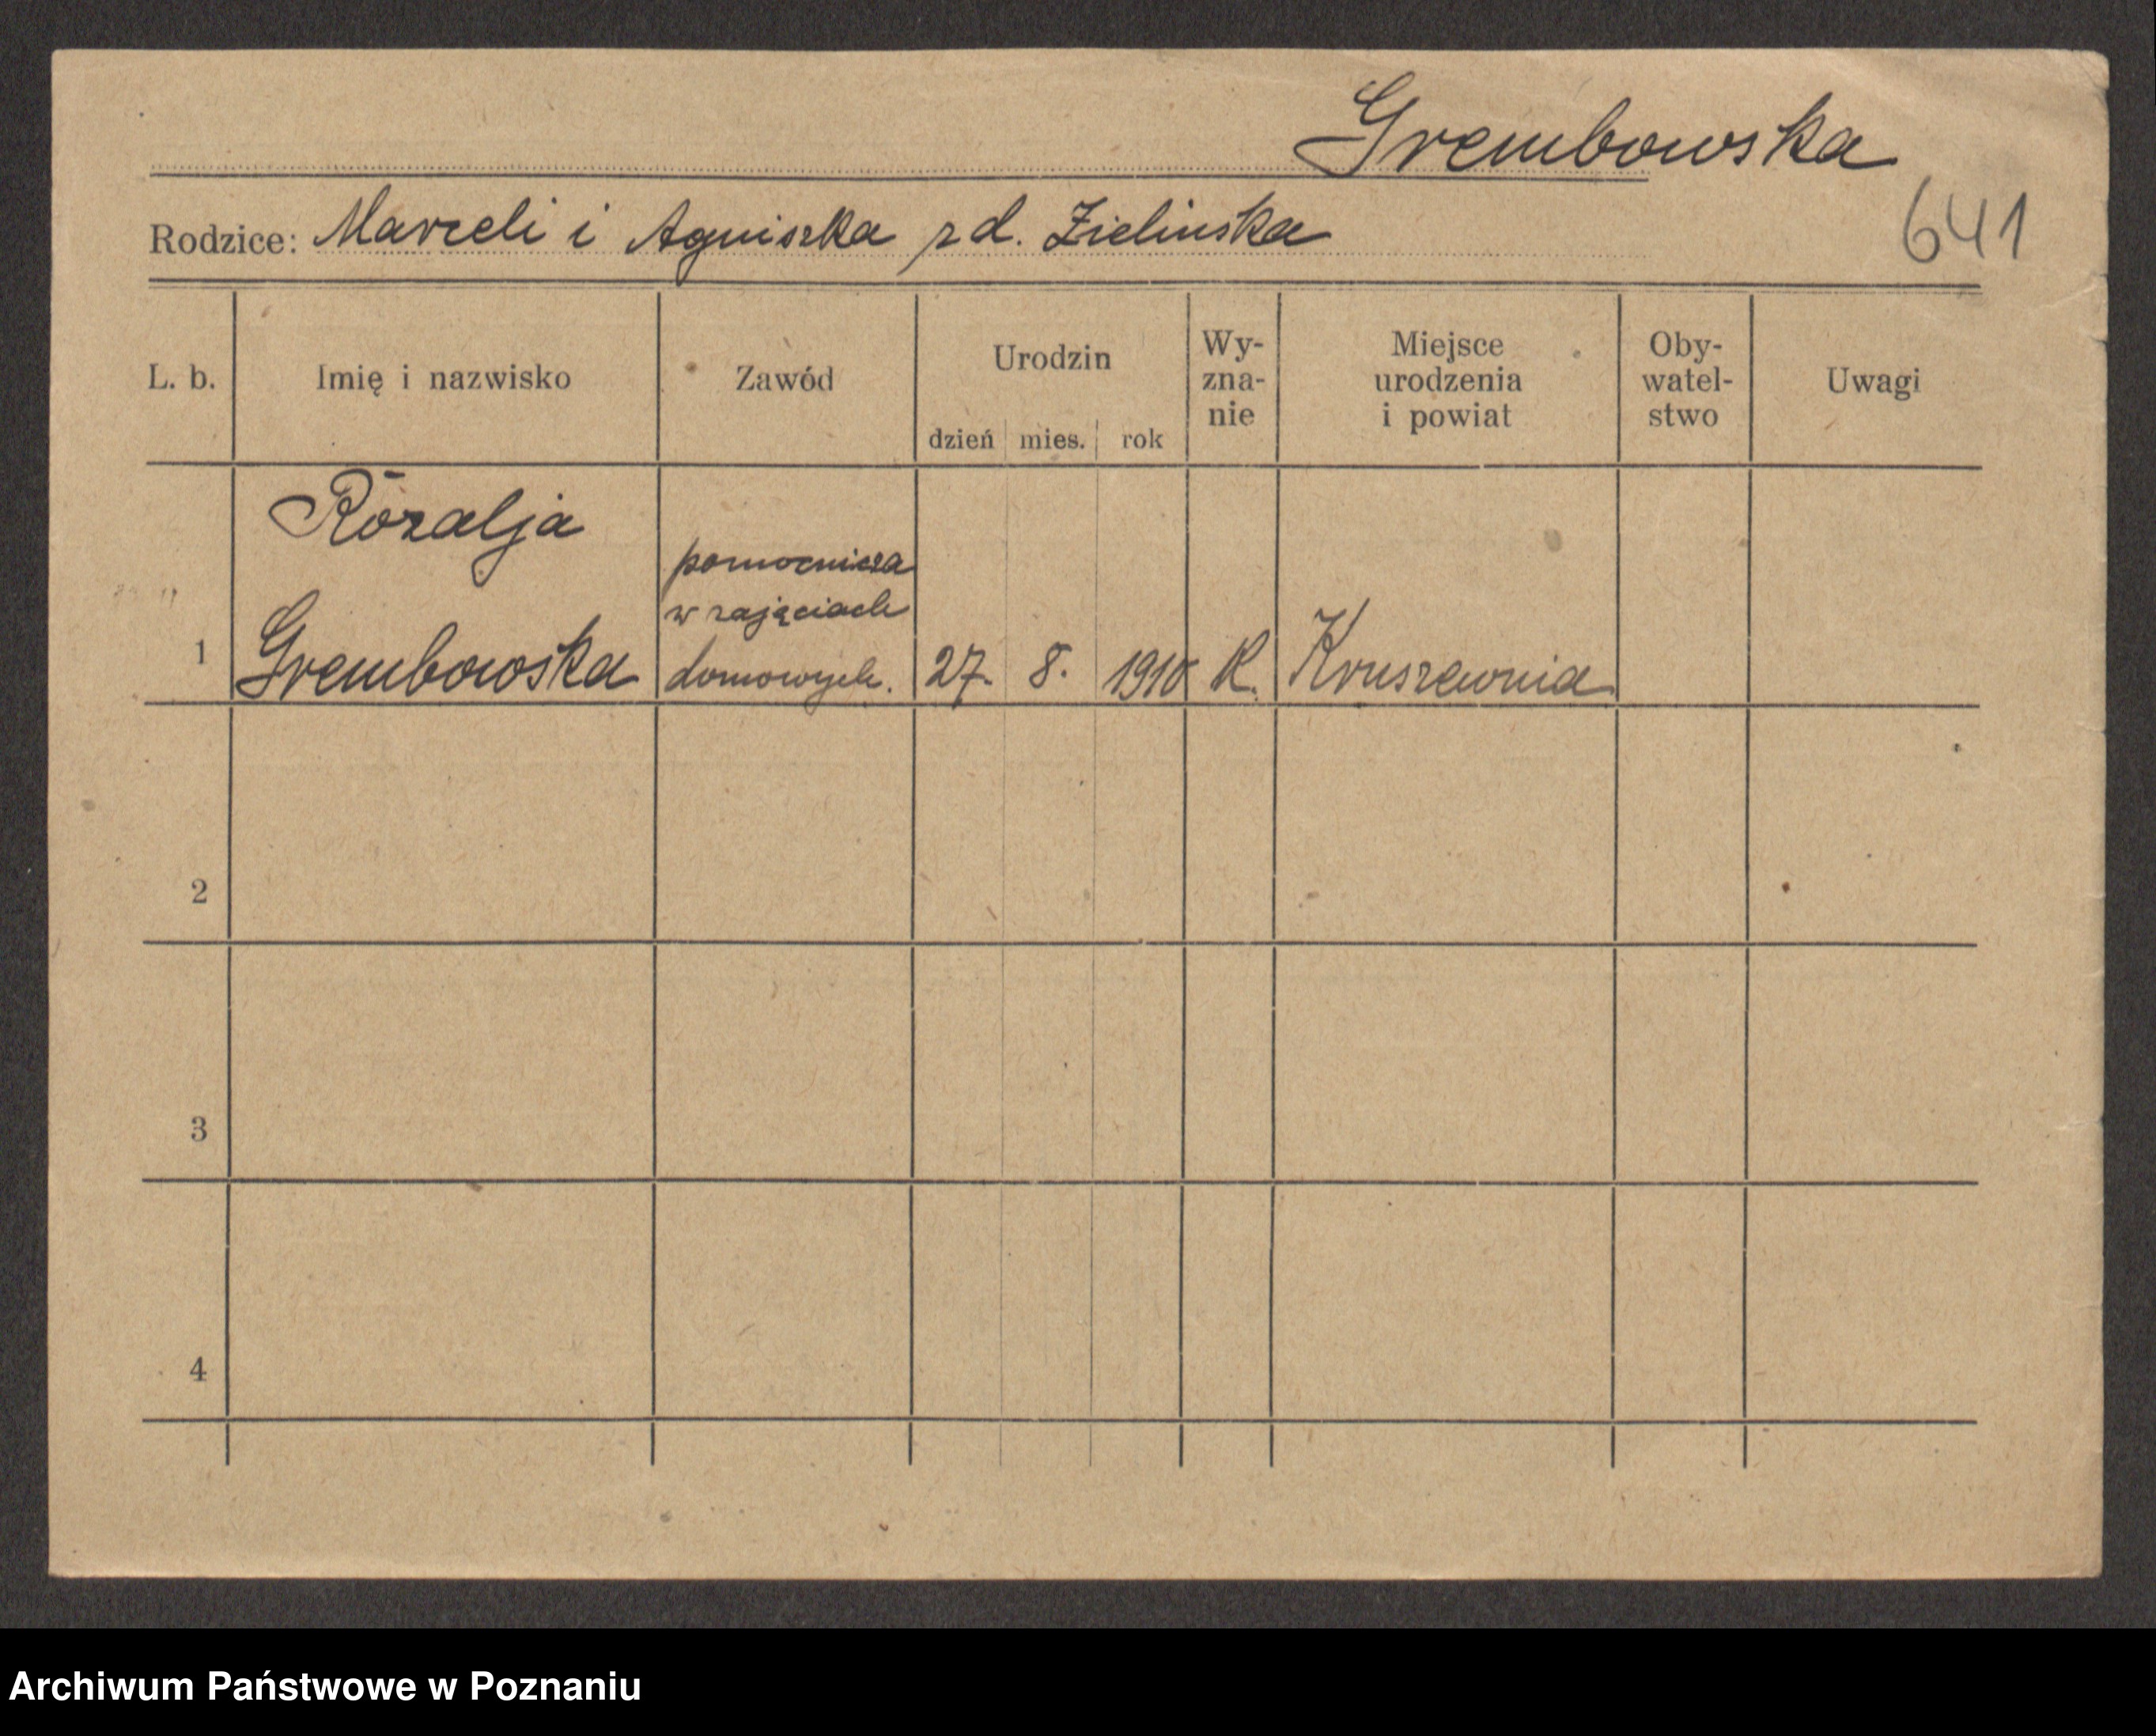 Grembowska
Rodzice: Marceli i Agniszka zd. Zielinska
641
L. b.
Imię i nazwisko
Zawód
Urodzin
dzień mies. rok
Wy-
zna-
nie
Miejsce
urodzenia
i powiat
Oby-
watel-
stwo
Uwagi
1
Rózalja
Grembowska
pomocnicza
w zajęciach
domowych.
27. 8. 1910
K.
Kruszewnia
2
3
4
Archiwum Państwowe w Poznaniu